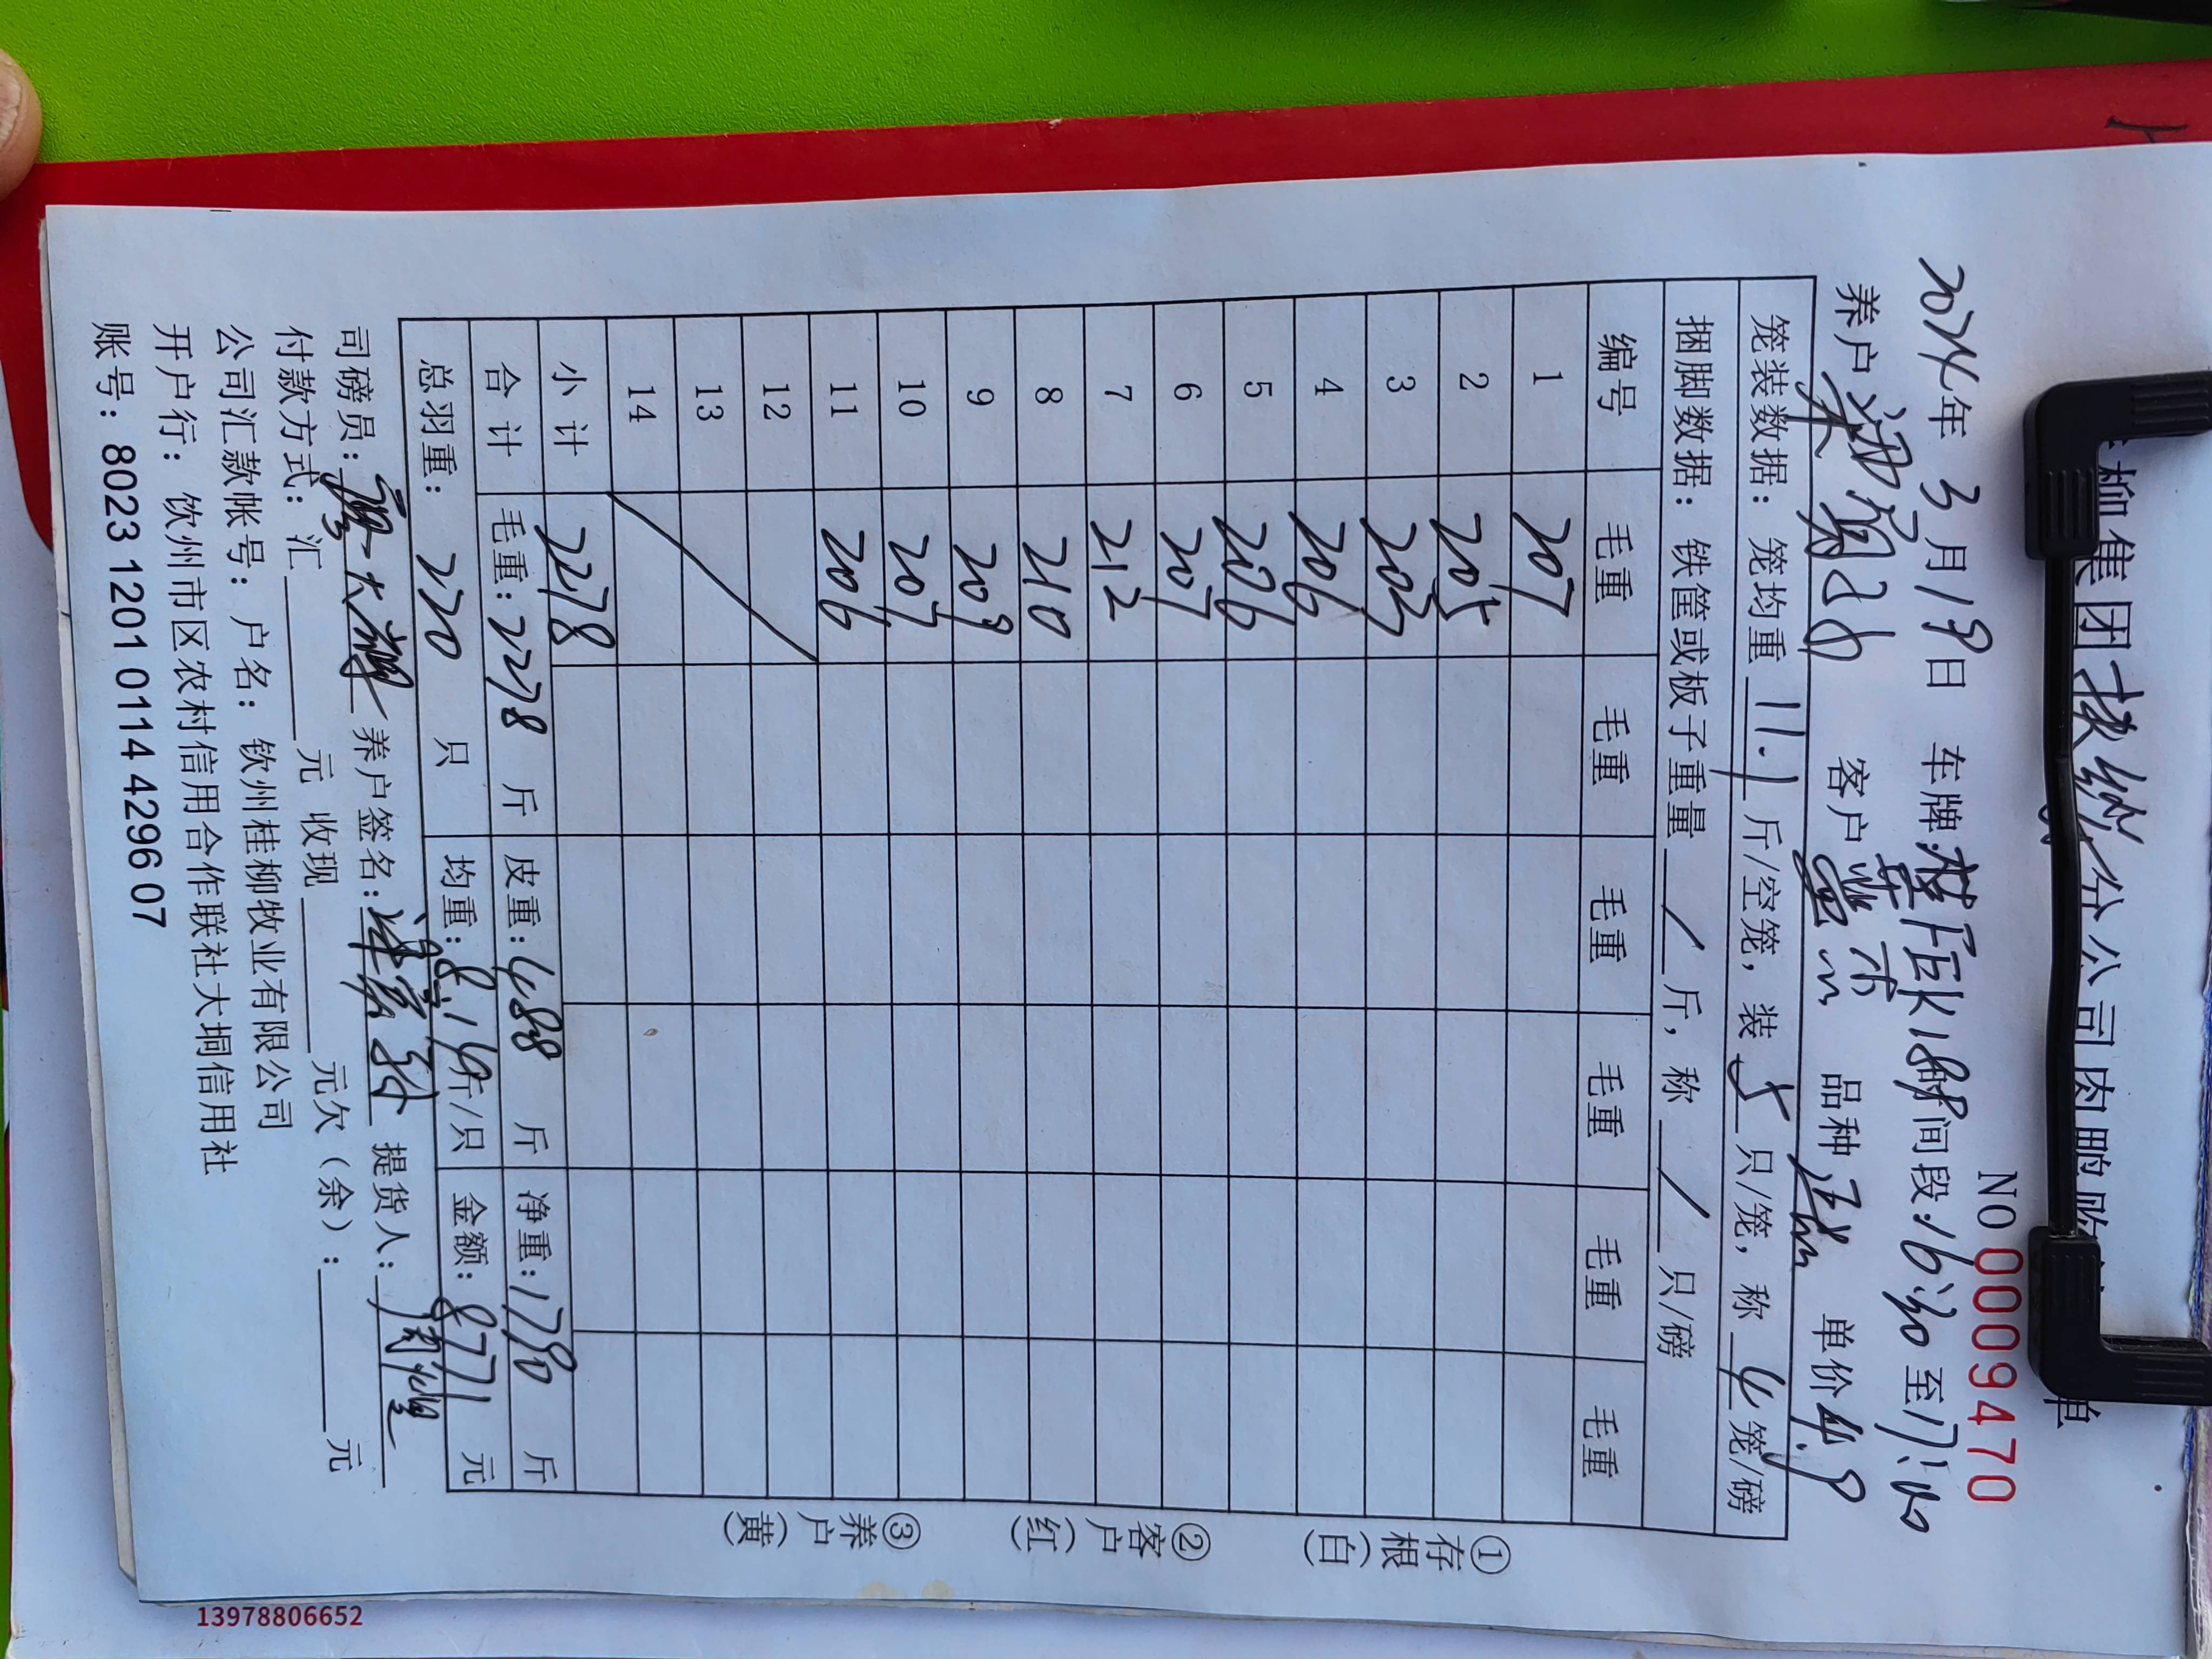 柳集团钦州分公司肉鸭
单
NO 0009470
2024年3月19日 车牌:桂FEK188 时间段:16:30至17:40
养户 客户 品种 单价4.9
笼装数据：笼均重 11.1 斤/空笼，装 5 只/笼，称 4 笼/磅
捆脚数据：铁筐或板子重量 / 斤，称 / 只/磅
编号 毛重 毛重 毛重 毛重 毛重 毛重
1 207
2 205
3 203
4 206
5 206
6 207
7 212
8 210
9 209
10 207
11 206
12
13
14
小计 2278
合计 毛重：2278 斤 皮重：488 斤 净重：1790 斤
总羽重： 220 只 均重：8.1 斤/只 金额：8771 元
司磅员： 养户签名： 提货人：
付款方式：汇 元 收现 元欠（余）： 元
公司汇款帐号：户名：钦州桂柳牧业有限公司
开户行：钦州市区农村信用合作联社大垌信用社
账号：8023 1201 0114 4296 07
①存根（白）
②客户（红）
③养户（黄）
13978806652